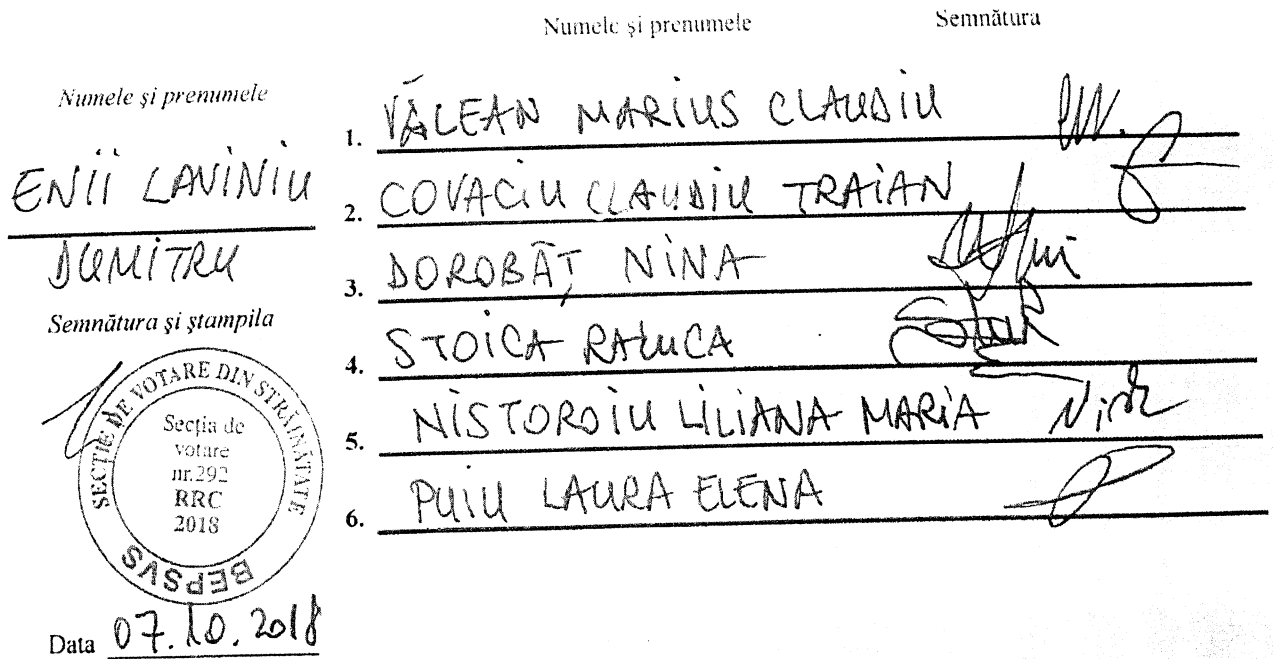 Numele și prenumele Semnătura
Numele și prenumele
ENII LAVINIU
DUMITRU
Semnătura și ștampila
SECȚIE DE VOTARE DIN STRĂINĂTATE
Secția de
votare
nr.292
RRC
2018
BEPSVS
Data 07.10.2018
1. VĂLEAN MARIUS CLAUDIU
2. COVACIU CLAUDIU TRAIAN
3. DOROBĂȚ NINA
4. STOICA RALUCA
5. NISTOROIU LILIANA MARIA
6. PUIU LAURA ELENA